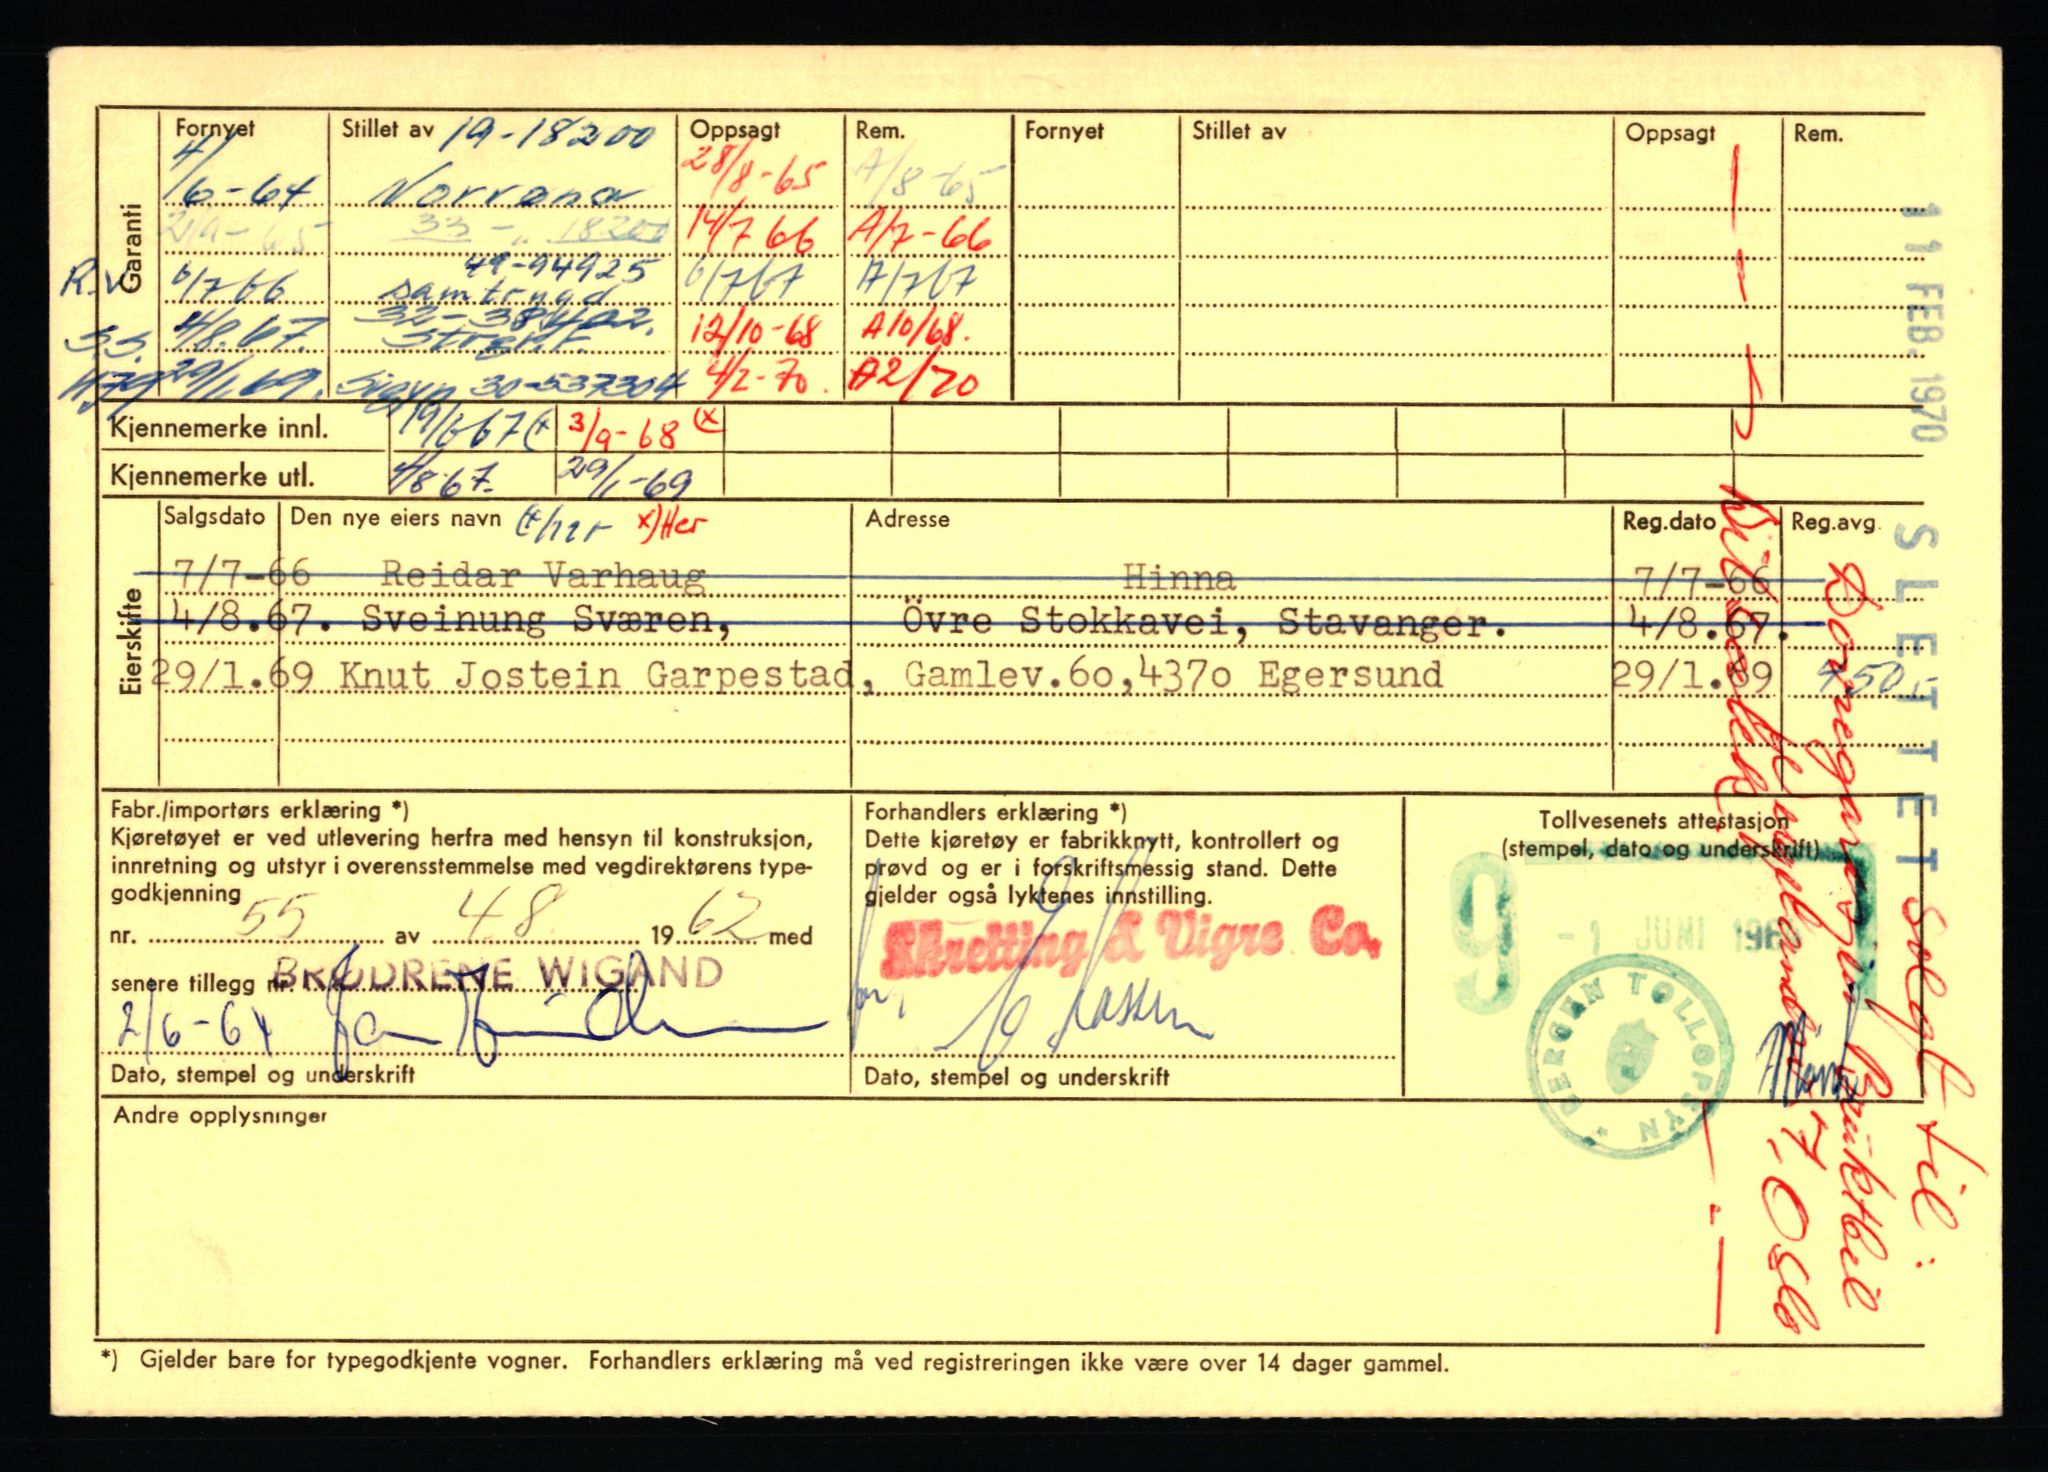 Garanti
Fornyet Stillet av 19-18200 Oppsagt Rem. Fornyet Stillet av Oppsagt Rem.
4/6-64 Norrøna 28/8-65 A/8-65
2/9-65 33-" 18200 14/7 66 A/7-66
R.v. 6/7 66 49-94925 samtrygd 6/7 67 A/7 67
S.S. 4/8.67. 32-38402. Storbr. 12/10-68 A10/68.
29/1.69. Sigyn 30-537304 4/2-70. A2/70
Kjennemerke innl. 19/6 67 (x 3/9-68 (x
Kjennemerke utl. 4/8 67. 29/1-69
Eierskifte
Salgsdato Den nye eiers navn (x her x) Her Adresse Reg.dato Reg.avg.
7/7-66 Reidar Varhaug Hinna 7/7-66
4/8.67. Sveinung Sværen, Övre Stokkavei, Stavanger. 4/8.67.
29/1.69 Knut Jostein Garpestad, Gamlev.60,4370 Egersund 29/1.69 450,-
Fabr./importørs erklæring *)
Kjøretøyet er ved utlevering herfra med hensyn til konstruksjon,
innretning og utstyr i overensstemmelse med vegdirektørens type-
godkjenning
nr. 55 av 4.8. 1962 med
senere tillegg nr. BRØDRENE WIGAND
2/6-64
Dato, stempel og underskrift
Forhandlers erklæring *)
Dette kjøretøy er fabrikknytt, kontrollert og
prøvd og er i forskriftsmessig stand. Dette
gjelder også lyktenes innstilling.
Skretting & Vigre Co.
Dato, stempel og underskrift
Tollvesenets attestasjon
(stempel, dato og underskrift)
9 -1 JUNI 196
TOLLOPSYN
Andre opplysninger
*) Gjelder bare for typegodkjente vogner. Forhandlers erklæring må ved registreringen ikke være over 14 dager gammel.
11 FEB. 1970
SLETTET Solgt til:
Bruktbil
7, Oslo